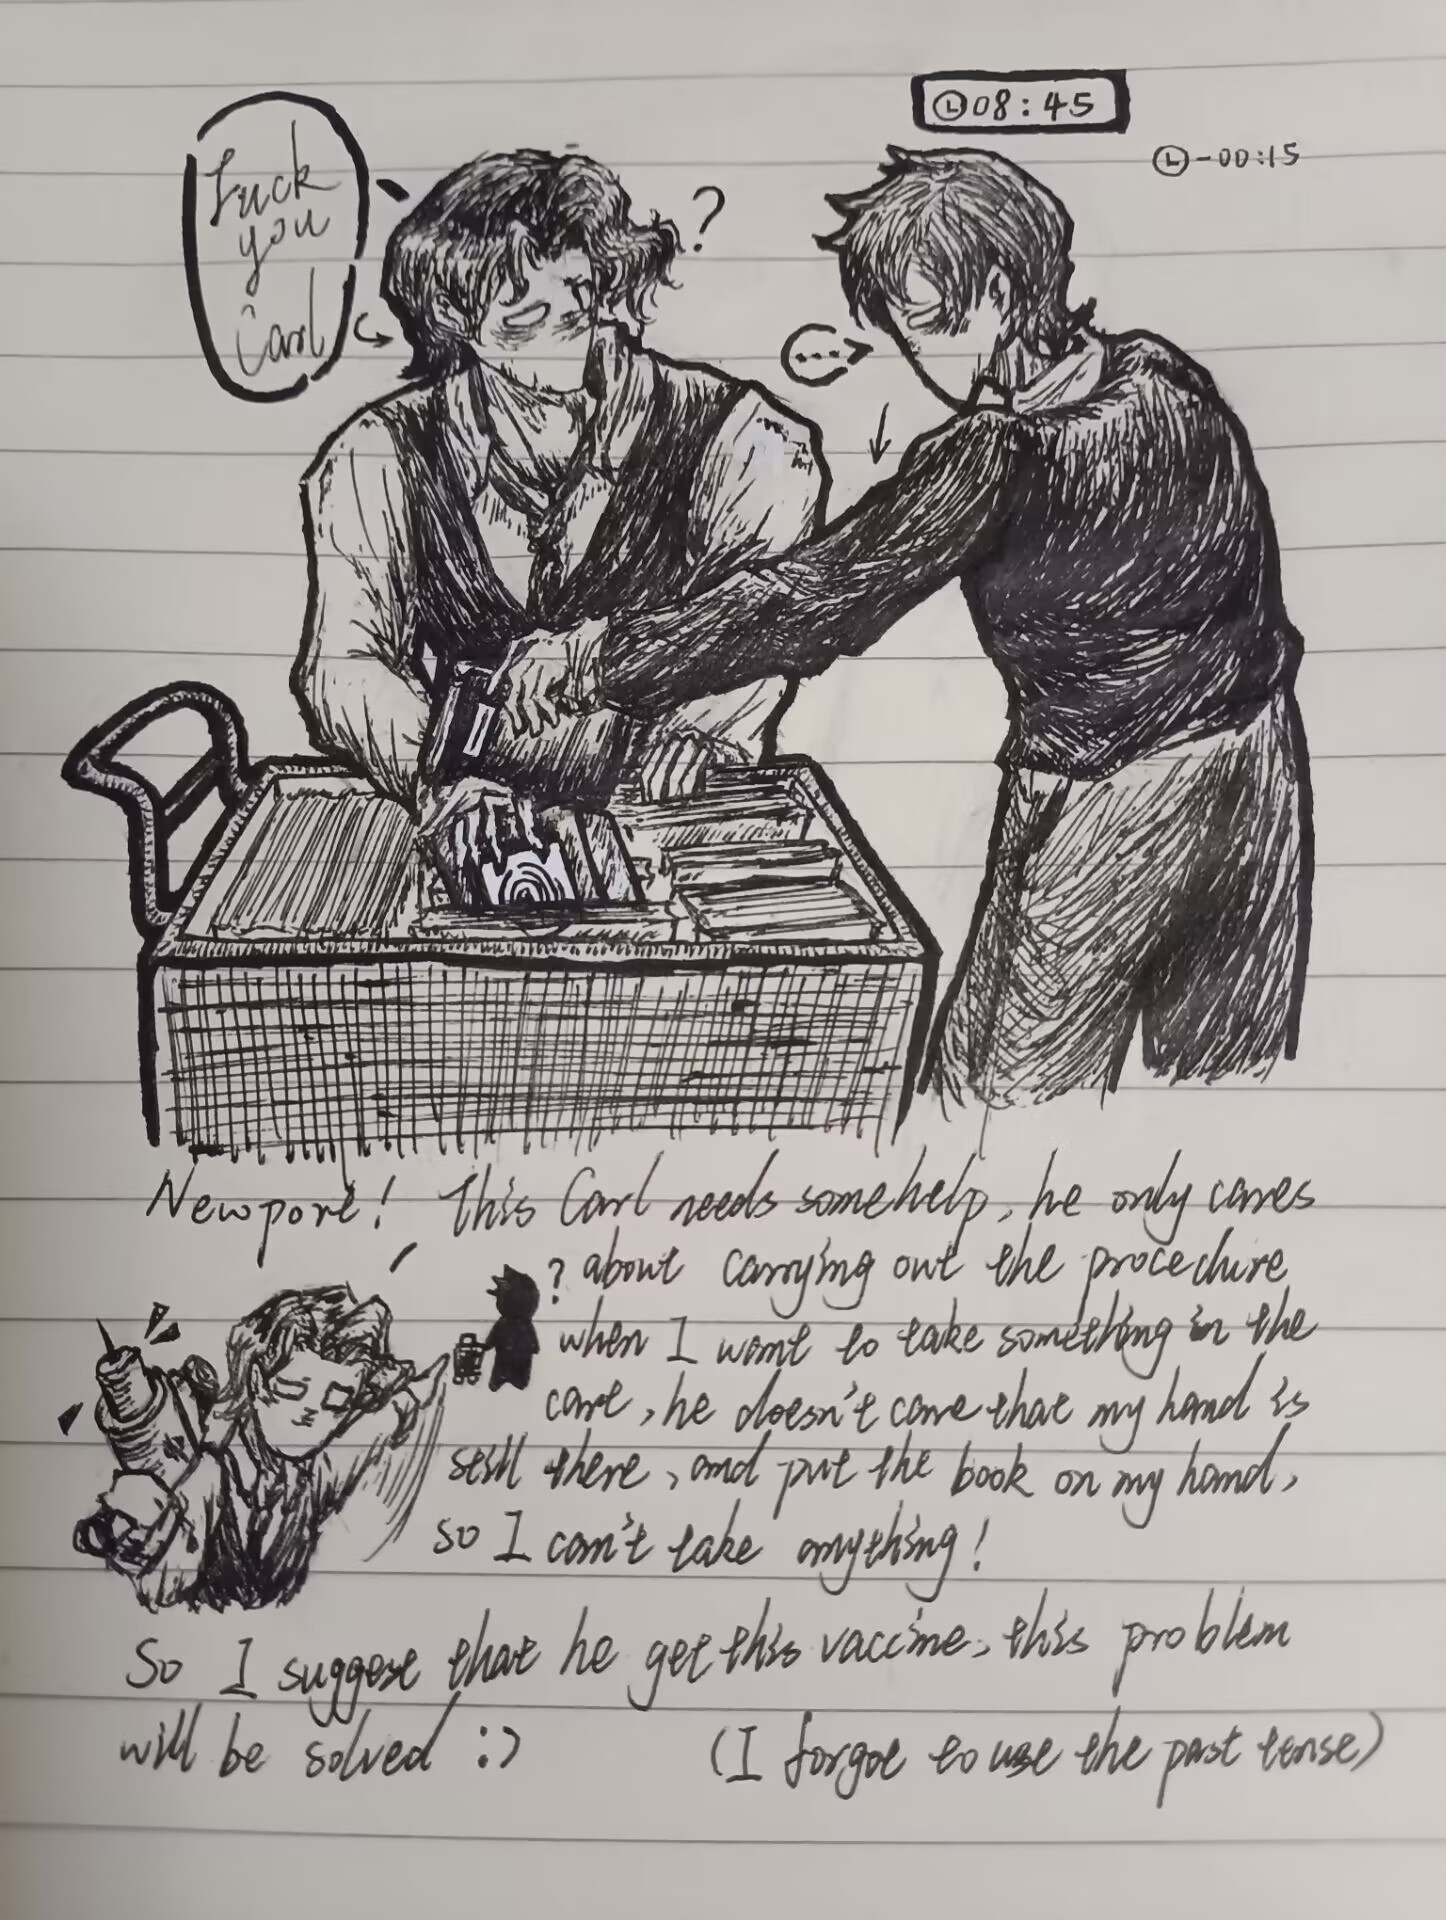 08:45
-00:15
Fuck
you
Carl
?
....
Newpore! This Carl needs some help, he only cares
? about carrying out the procedure
when I want to take something in the
cart, he doesn't care that my hand is
still there, and put the book on my hand,
so I can't take anything!
So I suggest that he get this vaccine, this problem
will be solved :)
(I forgot to use the past tense)